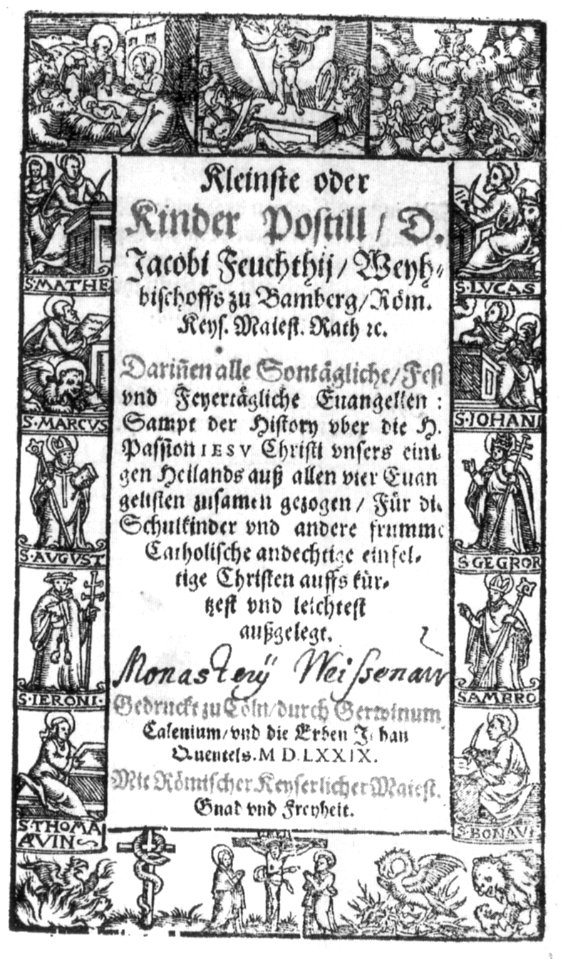 Kleinste oder
Kinder Postill / D.
Jacobi Feuchthij / Weyh-
bischoffs zu Bamberg / Röm.
Keys. Maiest. Rath ꝛc.
Dariñen alle Sontägliche / Fest
vnd Feyertägliche Euangelien:
Sampt der History vber die H.
Passion IESV Christi vnsers eini
gen Heilands auß allen vier Euan
gelisten zusamen gezogen / Für die
Schulkinder vnd andere frumme
Catholische andechtige einfel-
tige Christen auffs kür-
tzest vnd leichtest
außgelegt.
Monasterij Weissenaw
Gedruckt zu Cöln / durch Gerwinum
Calenium / vnd die Erben Johan
Quentels. M D. LXXIX.
Mit Römischer Keyserlicher Maiest.
Gnad vnd Freyheit.
S. MATHE
S. MARCUS
S. AUGUST
S. IERONI.
S. THOMA
AQVIN
S. LVCAS
S. IOHAN
S GEGROR
S AMBRO
S. BONAV